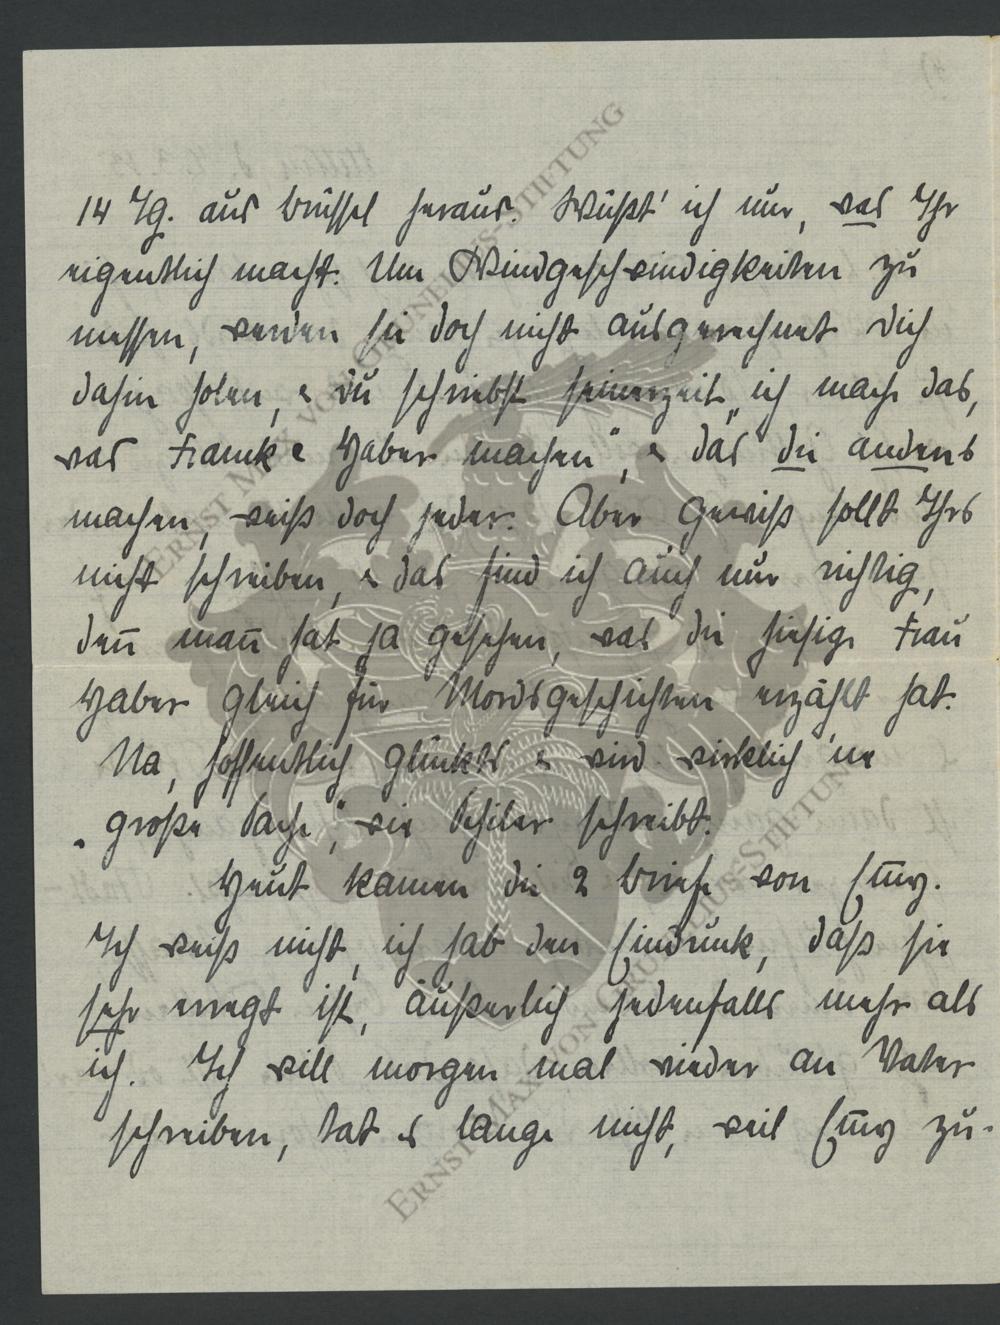 14 Tg. aus Brüssel heraus. Wüßt' ich nur, was Ihr
eigentlich macht. Um Windgeschwindigkeiten zu
messen, werden sie doch nicht ausgerechnet Dich
dahin holen, & Du schriebst seinerzeit „ich mach das,
was Franck & Haber machen", & das die andens
machen, weiß doch jeder. Aber gewiß sollt Ihrs
nicht schreiben, & das find ich auch nur richtig,
den̄ man̄ hat ja gesehen, was die hiesige Frau
Haber gleich für Mordsgeschichten erzählt hat.
Na, hoffentlich glückts & wird wirklich 'ne
„große Sache", wie Schiler schreibt.
Heut kamen die 2 Briefe von Em̄y.
Ich weiß nicht, ich hab den Eindruck, daß sie
sehr erregt ist, äußerlich jedenfalls mehr als
ich. Ich will morgen mal wieder an Vater
schreiben, tat es lange nicht, weil Em̄y zu-
ERNST MAX VON GRUNELIUS-STIFTUNG
ERNST MAX VON GRUNELIUS-STIFTUNG